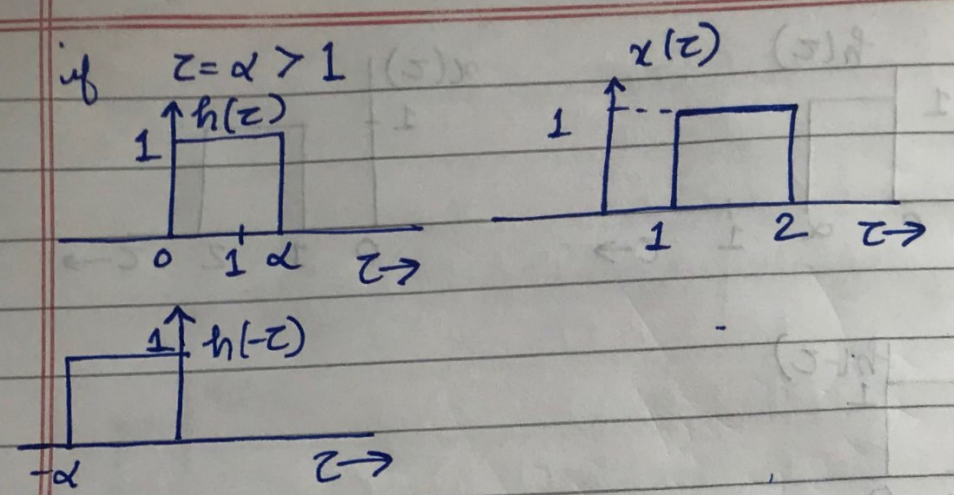 if τ = α > 1
h(τ)
1
0 1 α τ→
x(τ)
1
1 2 τ→
1 h(-τ)
-α τ→